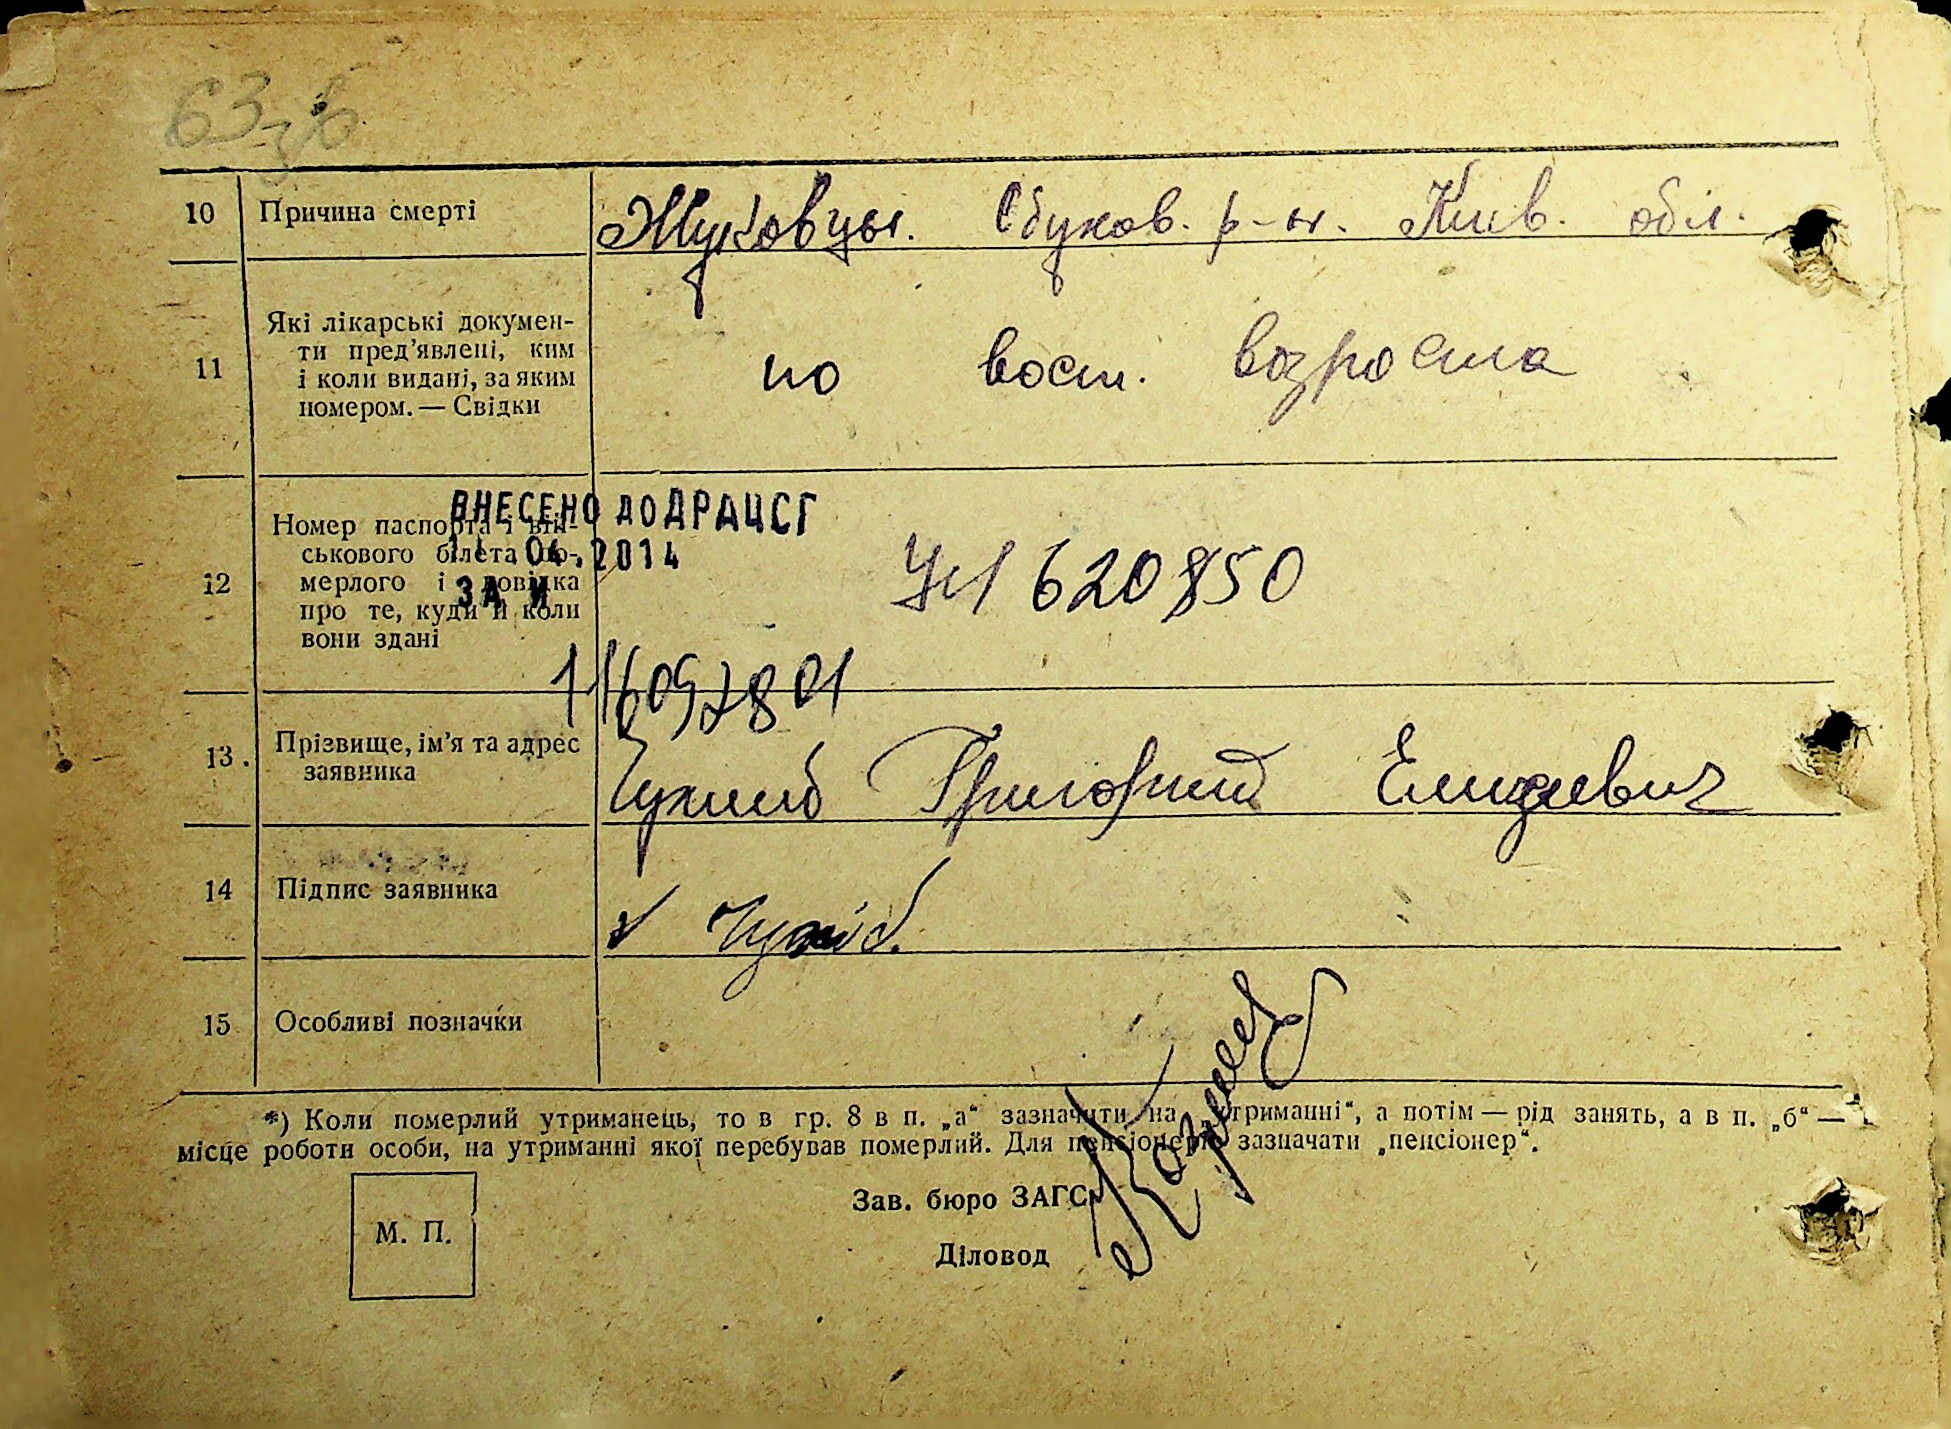 63
10 Причина смерті Жуковцы. Обухов. р-н. Киев. обл.
11 Які лікарські докумен-
ти пред’явлені, ким
і коли видані, за яким
номером. — Свідки
по возроста
ВНЕСЕНО ДО ДРАЦСГ
04.2014
ЗА №
12 Номер паспорта і вій-
ськового білета по-
мерлого і довідка
про те, куди й коли
вони здані
620850
116097801
13. Прізвище, ім’я та адрес
заявника
Григорий Елисеевич
14 Підпис заявника
15 Особливі позначки
*) Коли померлий утриманець, то в гр. 8 в п. „а“ зазначити „на утриманні“, а потім — рід занять, а в п. „б“ —
місце роботи особи, на утриманні якої перебував померлий. Для пенсіонерів зазначати „пенсіонер“.
М. П.
Зав. бюро ЗАГС
Діловод